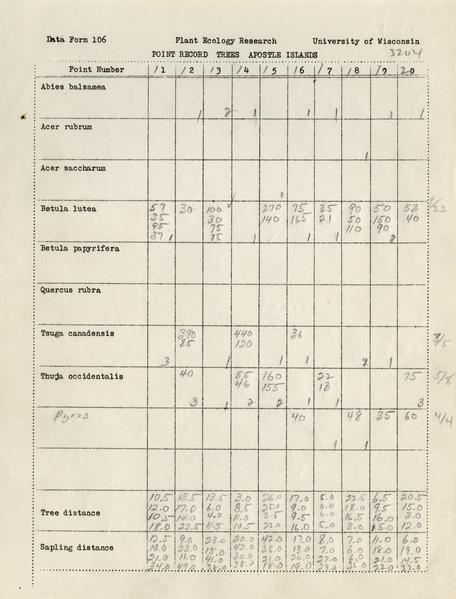 Data Form 106 Plant Ecology Research University of Wisconsin
3204
POINT RECORD TREES APOSTLE ISLANDS
Point Number /1 /2 /3 /4 /5 /6 /7 /8 /9 20
Abies balsamea
1 2 1 1 1 1
Acer rubrum
1
Acer saccharum
Betula lutea 57 30 100 270 75 35 90 50 53
35 30 140 165 21 50 150 40
95 75 110 90
37 1 85 1 1 1 2
Betula papyrifera
Quercus rubra
Tsuga canadensis 390 440 36
85 120
3 1 1 1 2 1
Thuja occidentalis 40 55 160 22 75 5/8
46 155 13
3 1 2 2 1 3
Pyros 40 48 35 60 4/4
1 1
10.5 13.5 13.5 3.0 26.0 17.0 5.0 22.5 6.5 20.5
12.0 17.0 6.0 8.5 25.0 9.0 6.0 18.0 9.5 15.0
Tree distance 10.5 14.0 4.0 11.0 3.5 9.5 6.0 16.5 16.0 3.0
18.0 22.5 11.5 10.5 22.0 16.0 5.0 3.0 15.0 12.0
12.5 9.0 28.0 20.0 42.0 17.0 8.0 7.0 11.0 6.0
Sapling distance 10.0 23.0 15.0 42.0 35.0 13.0 7.0 6.0 18.0 19.0
11.0 41.0 21.0 26.0 27.0 6.0 21.0 14.5
34.0 49.0 18.0 23.0 37.0